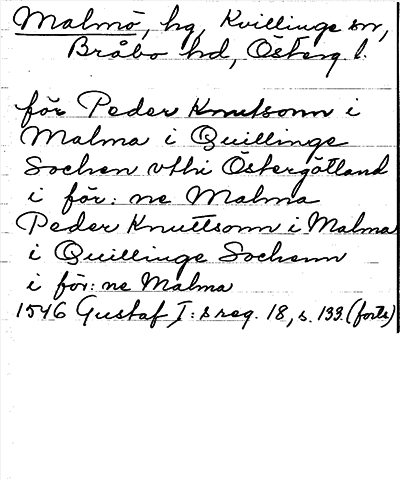 Malmö, hg, Kvillinge sn,
Bråbo hd, Österg l.
för Peder Knutsonn i
Malma i Quillinge
Sochen vthi Östergötland
i för: ne Malma
Peder Knuttsonn i Malma
i Quillinge Sochenn
i för: ne Malma
1546 Gustaf I: s reg. 18, s. 133. (forts)